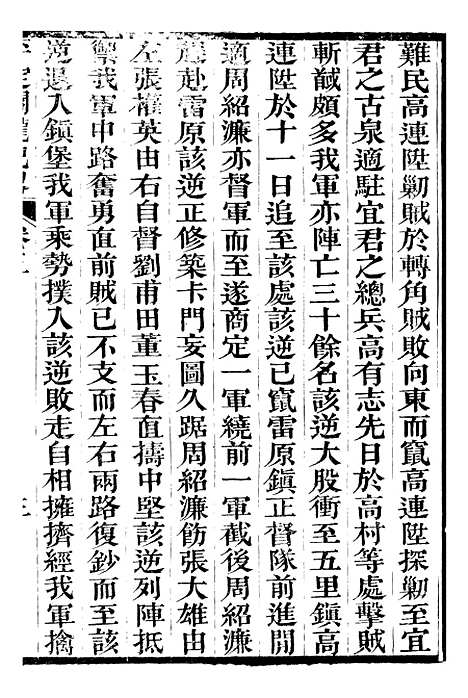 難民高連陞勦賊於轉角賊敗向東而竄高連陞探勦至宜
君之古泉適駐宜君之總兵高有志先日於高村等處擊賊
斬馘頗多我軍亦陣亡三十餘名該逆大股衝至五里鎮高
連陞於十一日追至該處該逆已竄雷原鎮正督隊前進開
適周紹濂亦督軍而至遂商定一軍繞前一軍截後周紹濂
趕赴雷原該逆正修築卡門妄圖久踞周紹濂飭張大雄由
左張權英由右自督劉甫田董玉春直擣中堅該逆列陣抵
禦我軍中路奮勇直前賊已不支而左右兩路復鈔而至該
逆退入鎮堡我軍乘勢撲入該逆敗走自相擁擠經我軍擒